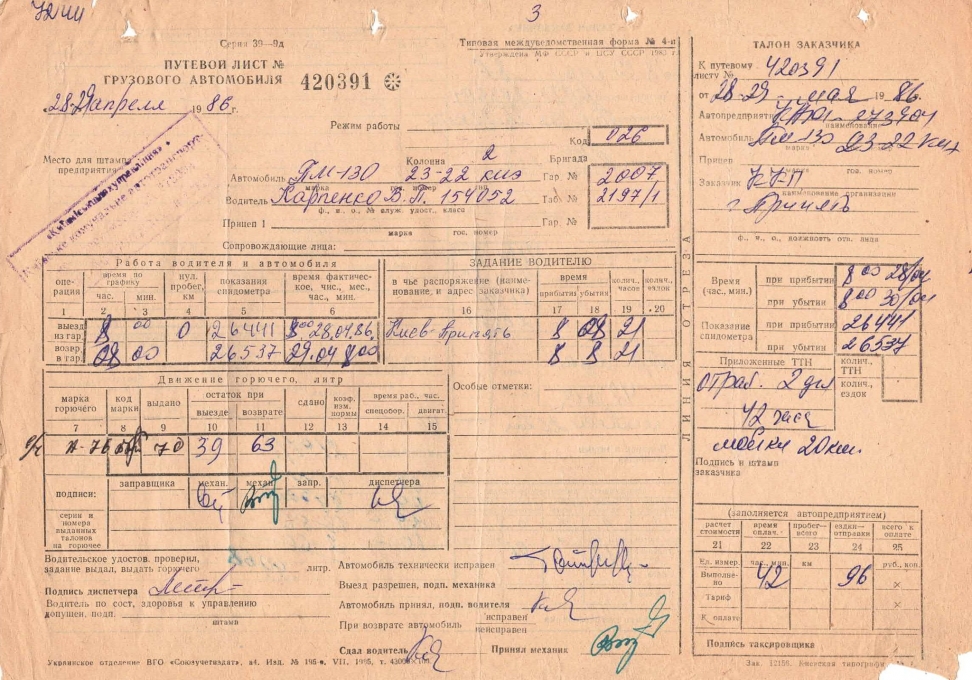 3
Серия 39—9д
Типовая междуведомственная форма № 4-п
Утверждена МФ СССР и ЦСУ СССР
ПУТЕВОЙ ЛИСТ №
ГРУЗОВОГО АВТОМОБИЛЯ 420391
28-29 апреля 1986 г.
Режим работы
Код 026
Место для штампа предприятия
Колонна 2
Бригада
Автомобиль ПМ-130 23-22 киэ Гар № 2007
марка гос. номер
Водитель Карпенко В.П. 154052 Таб. № 2197/1
ф., и., о. № служ. удост. класса
Прицеп 1 Гар. №
марка гос. номер
Сопровождающие лица:
Работа водителя и автомобиля
операция
время по графику
час. мин.
нул. пробег, км
показания спидометра
время фактическое, число, мес., час., мин.
1 2 3 4 5 6
выезд из гар. 8 00 0 26441 8 00 28.04.86.
возвр. в гар. 08 00 26537 29.04 8 00
ЗАДАНИЕ ВОДИТЕЛЮ
в чье распоряжение (наименование и адрес заказчика)
время
прибытия убытия
колич. часов
колич. ездок
16 17 18 19 20
Киев-Припять 8 08 21
8 8 21
Движение горючего, литр
марка горючего
код марки
выдано
остаток при
выезде возврате
сдано
коэф. изм. нормы
время раб., час.
спецобор. двигат.
7 8 9 10 11 12 13 14 15
А-76 70 39 63
Особые отметки:
подписи:
заправщика механ. механ. запр. диспетчера
серии и номера выданных талонов на горючее
Водительское удостов. проверил,
задание выдал, выдать горючего литр.
Подпись диспетчера
Водитель по сост. здоровья к управлению
допущен. подп.
штамп
Автомобиль технически исправен
Выезд разрешен, подп. механика
Автомобиль принял, подп. водителя
При возврате автомобиль исправен
неисправен
Сдал водитель
Принял механик
Украинское отделение ВГО «Союзучетиздат»
ЛИНИЯ ОТРЕЗА
ТАЛОН ЗАКАЗЧИКА
К путевому листу № 420391
от 28-29 мая 1986.
Автопредприятие
наименование
Автомобиль ПМ 130 23-22
марка гос. номер
Прицеп
Заказчик
наименование организации
г. Припять
ф., и., о., должность отв. лица
Время (час., мин.)
при прибытии 8 00 28/04
при убытии 8 00 30/04
Показание спидометра
при прибытии 26441
при убытии 26537
Приложенные ТТН
колич., ТТН
колич., ездок
отраб. 2 дня
42 часа
мойки 20 км.
Подпись и штамп заказчика
(заполняется автопредприятием)
расчет стоимости
время оплач.
пробег— всего
ездки— отправки
всего к оплате
21 22 23 24 25
Ед. измер. час., мин. км руб., коп.
Выполнено 42 96 ×
Тариф ×
К оплате
Подпись таксировщика